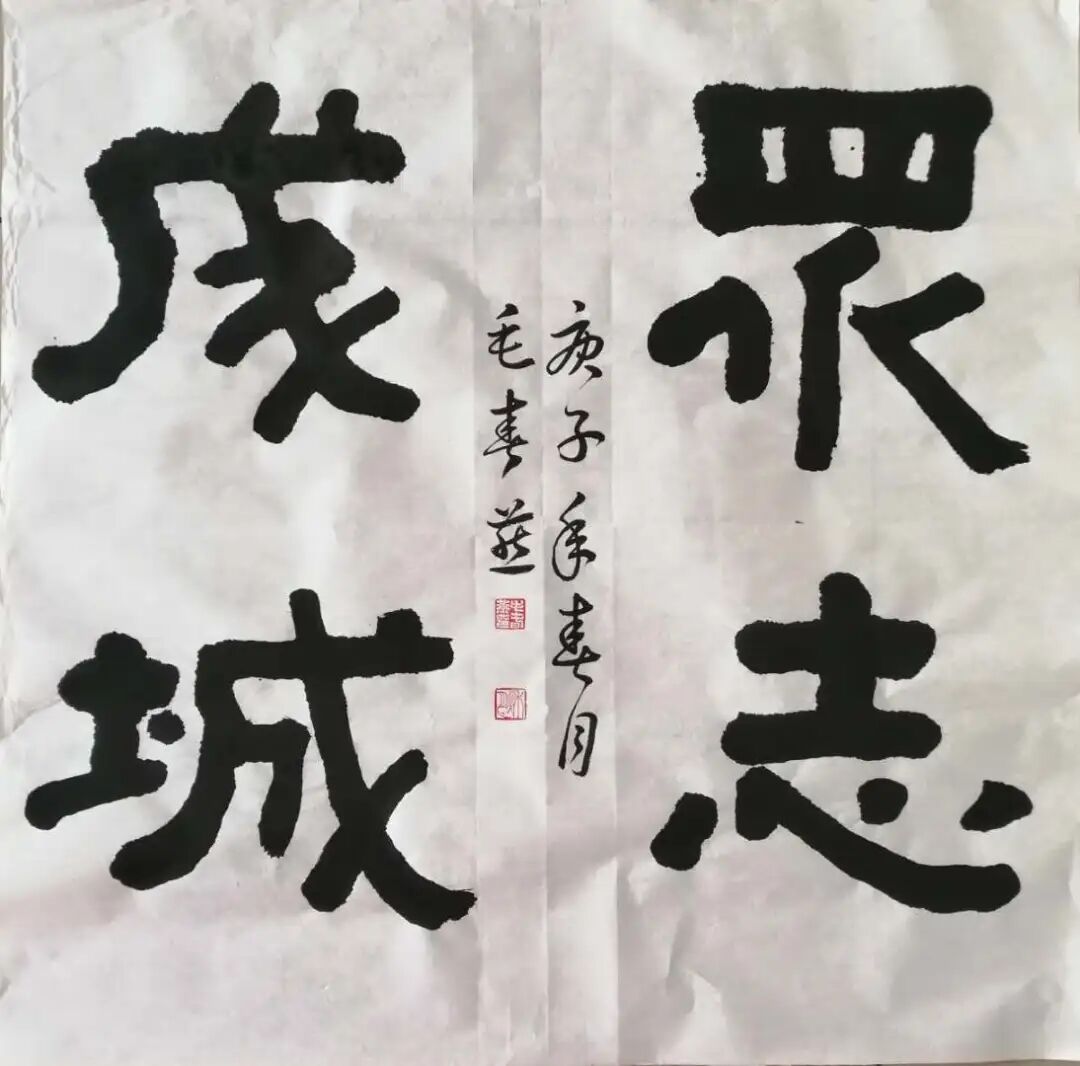 眾志
成城
庚子年春月
毛春燕